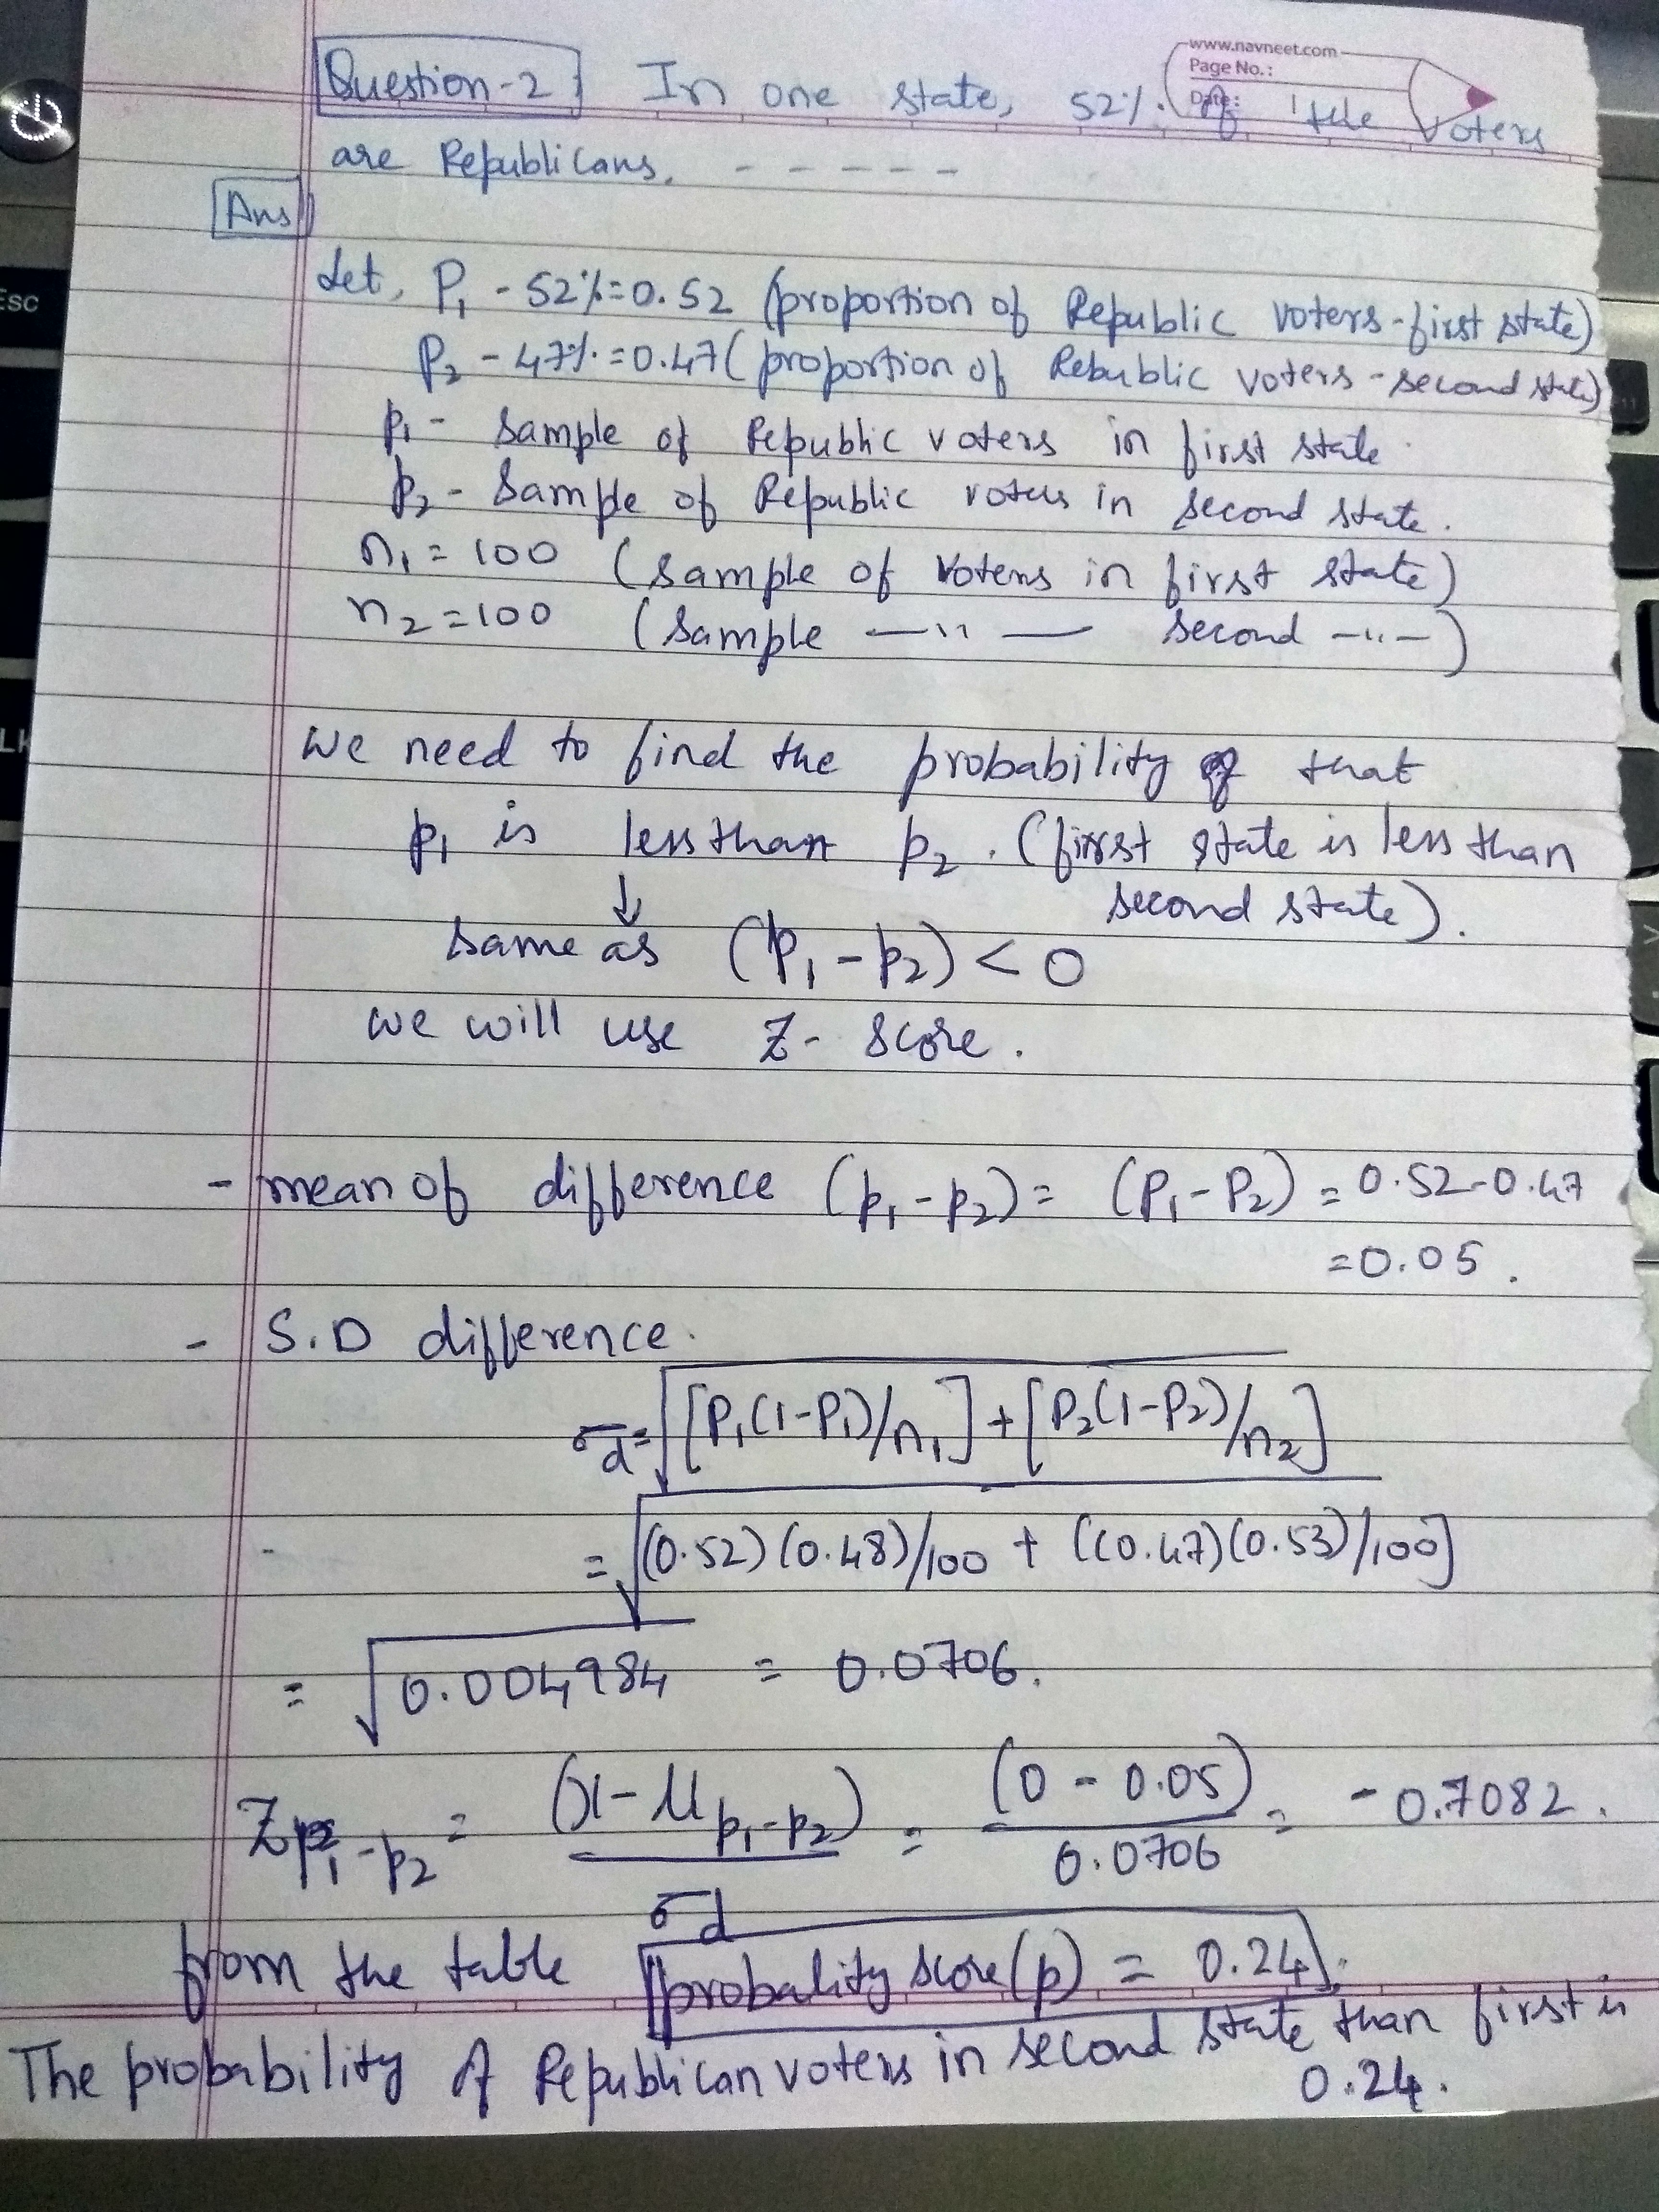 www.navneet.com
Page No.:
Date:
Question-2 In one state, 52% of the voters
are Republicans. - - - - - -
Ans
Let, P₁ - 52% = 0.52 (proportion of Republic voters - first state)
P₂ - 47% = 0.47 (proportion of Republic voters - second state)
p₁ - Sample of Republic voters in first state.
p₂ - Sample of Republic voters in second state.
n₁ = 100 (Sample of voters in first state)
n₂ = 100 (Sample —"— second —"—)
we need to find the probability that
p₁ is less than p₂. (first state is less than
second state).
↓
same as (p₁ - p₂) < 0
we will use Z- score.
- mean of difference (p₁ - p₂) = (P₁ - P₂) = 0.52 - 0.47
= 0.05.
- S.D difference.
σd = √[P₁(1-P₁)/n₁] + [P₂(1-P₂)/n₂]
= √(0.52)(0.48)/100 + ((0.47)(0.53)/100]
= √0.004984 = 0.0706.
Z p₁ - p₂ = (x - μ p₁-p₂) / σd = (0 - 0.05) / 0.0706 = -0.7082.
from the table probality score (p) = 0.24.
The probability of Republican voters in second state than first is
0.24.
Esc